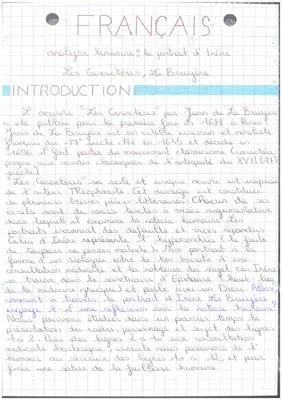 FRANÇAIS
analyse linéaire : le portrait d'Irène
Les Caractères, La Bruyère
INTRODUCTION
L'oeuvre "Les Caractères" par Jean de La Bruyère
a été publiée pour la première fois en 1688 à Paris.
Jean de La Bruyère est un célèbre écrivain et moraliste
français du 17 siècle. Né en 1645 et décédé en
1696. Il fait partie du mouvement classicisme (caractère
propre aux classiques de l'antiquité du XVII (17)
siècle)
"Les Caractères" son seule et unique oeuvre est inspirée
de l'auteur Théophraste. Cet ouvrage est constituée
de plusieurs brèves pièces littéraires. Chacun de ses
écrits sont de courts textes à visées argumentative
dans lequel il examine la nature humaine. Les
portraits incarnent des défauts et vices répandus
Celui d'Irène représente l'hypocondrie (le fait
de toujours se penser malade). Mon portrait a la
forme d'un dialogue entre le ton banale d'une
consultation médicale et la noblesse du sujet car Irène
se trouve dans le sanctuaire d'Epidaure (haut lieu
de la médecine grecque) et parle avec un Dieu. Alors,
comment à travers le portrait d'Irène La Bruyère
engage-t-il une réflexion sur la nature humaine?
Nous pouvons étudier dans un premier temps la
présentation du cadre, personnage et sujet des lignes
1 à 2. Puis des lignes 2 à une consultation
médicale burlesque, ensuite nous passerons de l'
humour au sérieux des lignes 10 à 12, et pour
finir une satire de la faiblesse humaine.